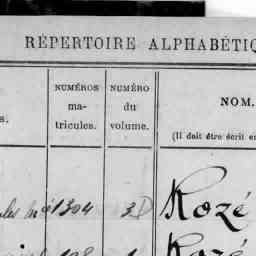 RÉPERTOIRE ALPHABÉTIQ
NUMÉROS
ma-
tricules.
NUMÉRO
du
volume.
NOM.
(Il doit être écrit e
s.
1304
3D
Rozé